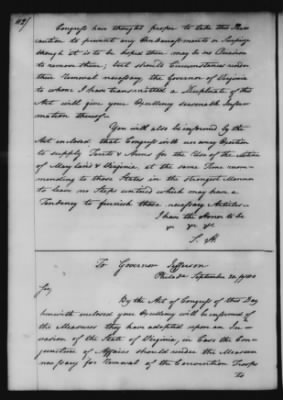 112
Congress has thought proper to take this Pre
caution to prevent any Embarrassments or Surprize
though it is to be hoped there may be no Occasion
to remove them; but should Circumstances render
their Removal necessary the Governor of Virginia
to whom I have transmitted a Duplicate of the
Act will give your Excellency seasonable Infor
mation thereof.
You will also be informed by the
Act enclosed that Congress will use every Exertion
to supply Tents & Arms for the Use of the Militia
of Maryland & Virginia at the same Time recom
mending to those States in the strongest Manner
to leave no Steps untried which may have a
Tendency to furnish those necessary Articles.
I have the Honor to be
&c &c &c
S. H.
To Governor Jefferson
Philada September 20, 1780
Sir,
By the Act of Congress of this Day
herewith enclosed your Excellency will be informed of
the Measures they have adopted upon an In-
vasion of the State of Virginia, in Case the Con-
juncture of Affairs should render the Measure
necessary for Removal of the Convention Troops
to